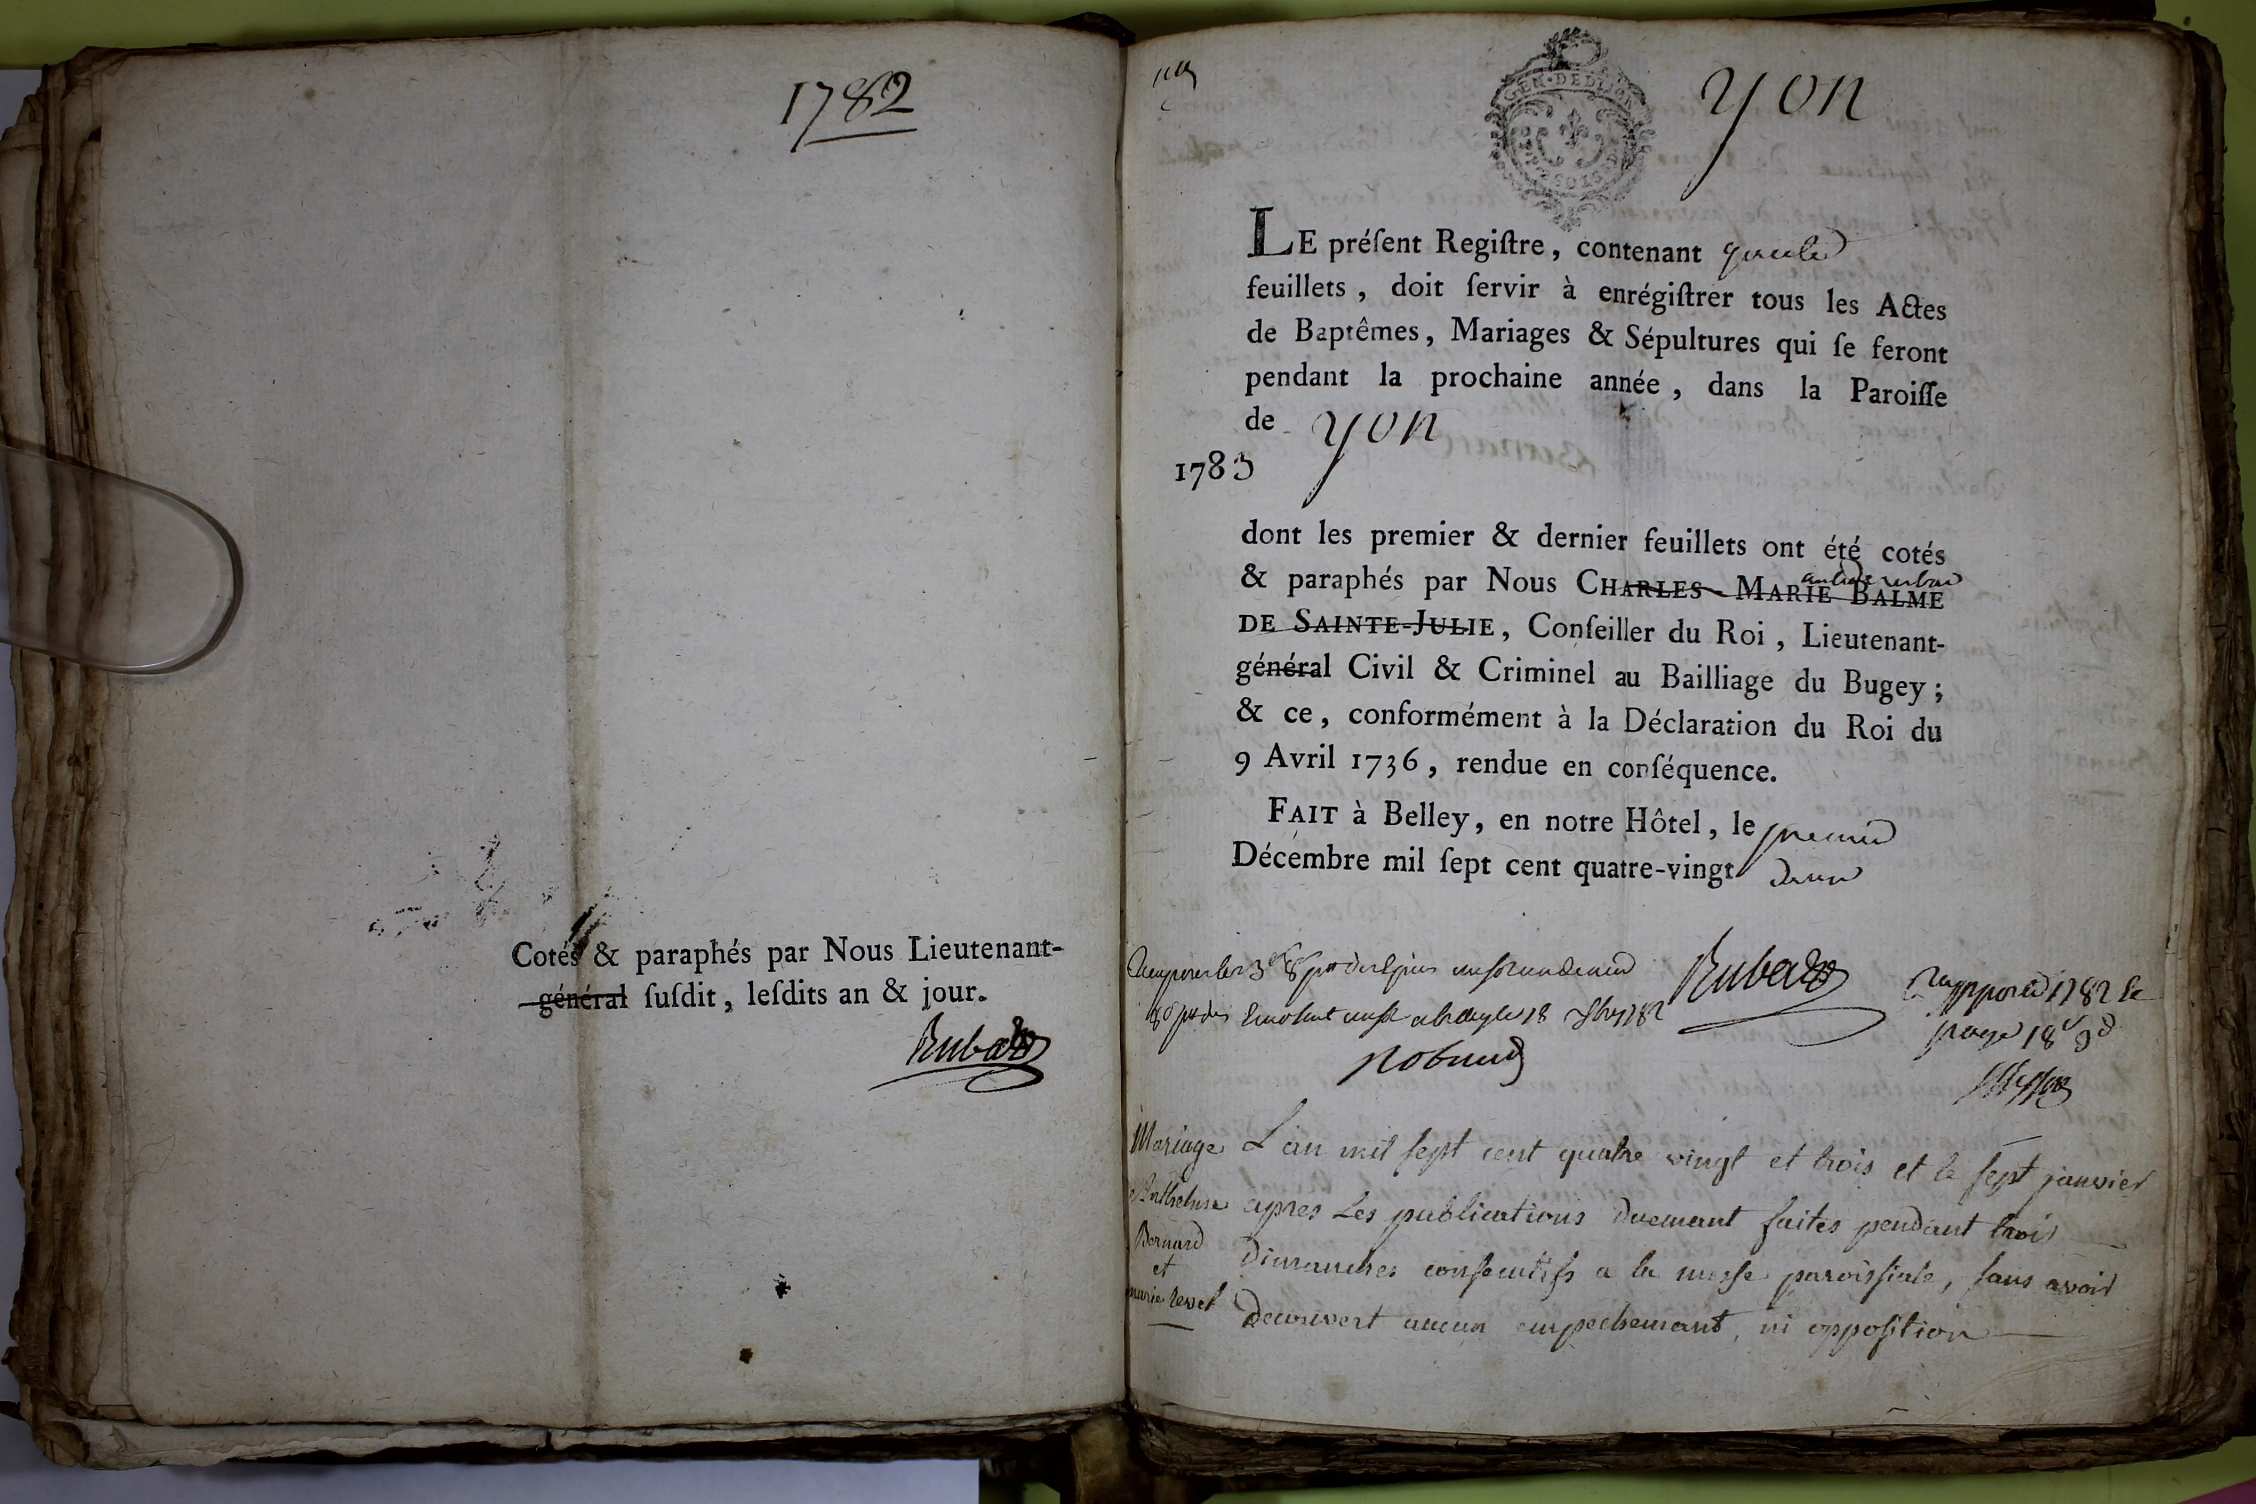 1782
Cotés & paraphés par Nous Lieutenant-
général ſuſdit, leſdits an & jour.
Rubat
GEN. DE DIJON
Yon
LE préſent Regiſtre, contenant
feuillets, doit ſervir à enrégiſtrer tous les Actes
de Baptêmes, Mariages & Sépultures qui ſe feront
pendant la prochaine année, dans la Paroiſſe
de Yon
1783
dont les premier & dernier feuillets ont été cotés
& paraphés par Nous CHARLES-MARIE BALME
DE SAINTE-JULIE, Conſeiller du Roi, Lieutenant-
général Civil & Criminel au Bailliage du Bugey;
& ce, conformément à la Déclaration du Roi du
9 Avril 1736, rendue en conſéquence.
FAIT à Belley, en notre Hôtel, le premier
Décembre mil ſept cent quatre-vingt deux
Rubat
1782
page 18
Mariage
Berthelme
Bernard
et
marie revel
L'an mil sept cent quatre vingt et trois et le sept janvier
apres les publications duemant faites pendant trois
Dimanches consecutifs a la messe paroissiale, sans avoir
decouvert aucun empechemant, ni opposition